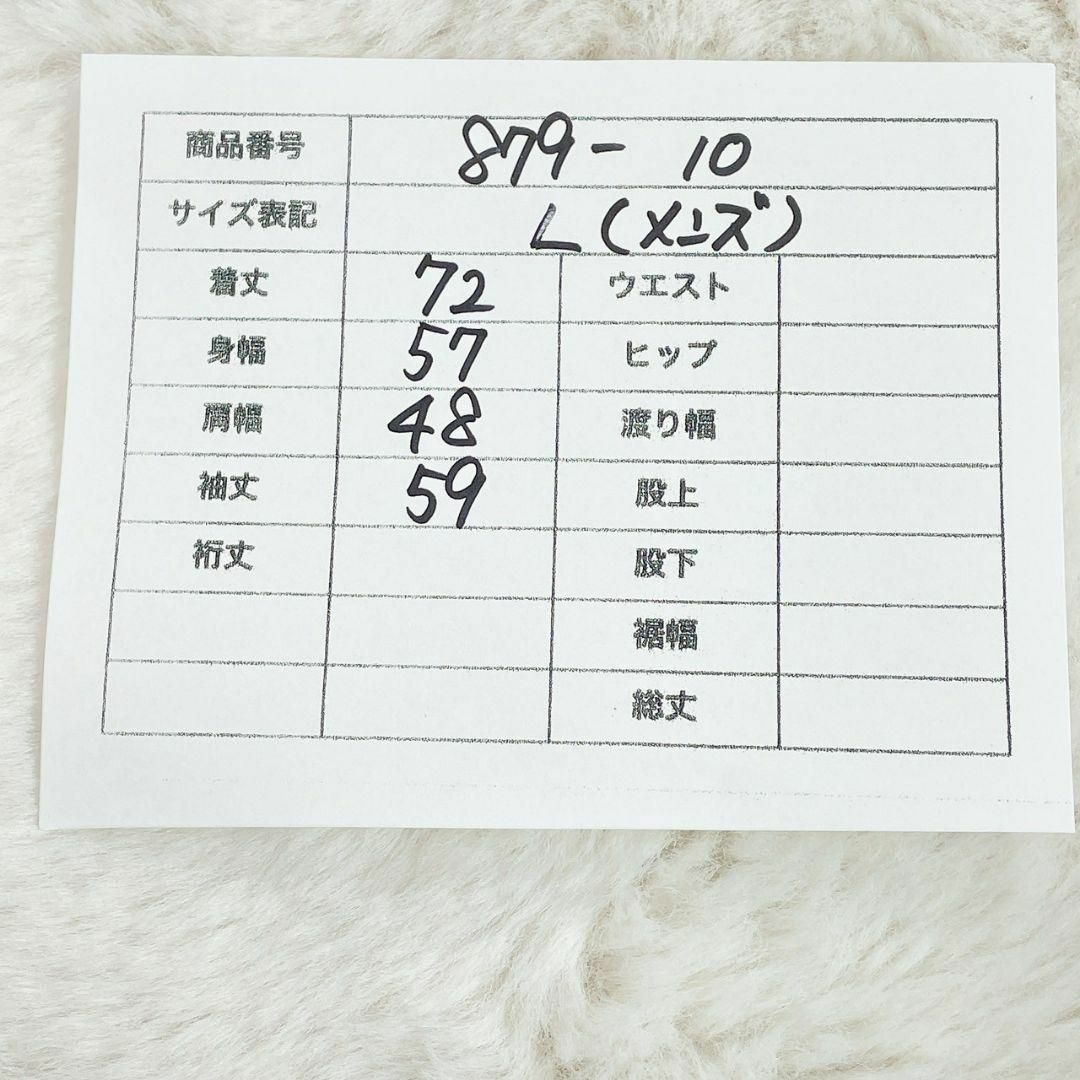 商品番号 879- 10
サイズ表記 L(メンズ)
着丈 72 ウエスト
身幅 57 ヒップ
肩幅 48 渡り幅
袖丈 59 股上
裄丈 股下
裾幅
総丈